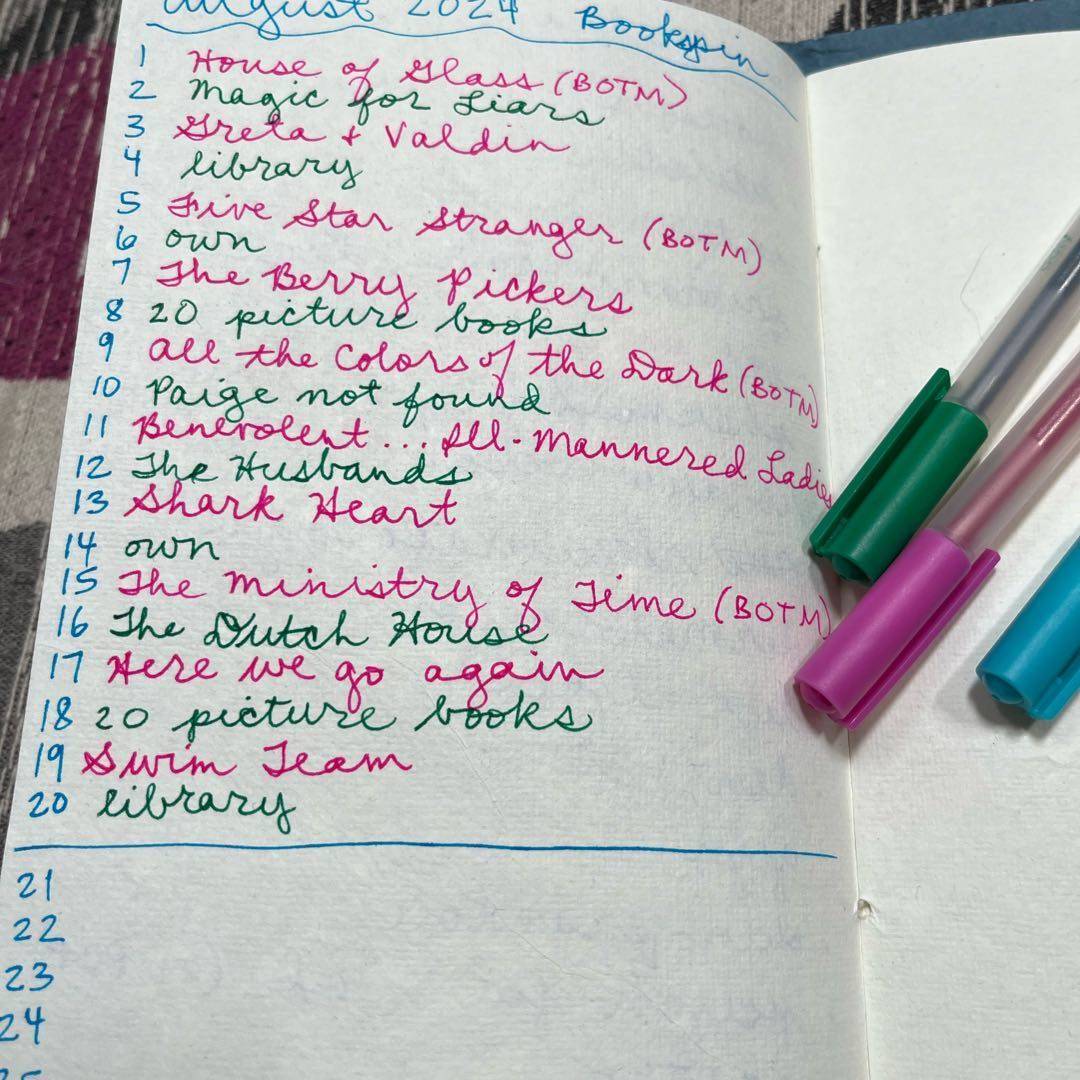 August 2024 Bookspin
1 House of Glass (BOTM)
2 Magic for Liars
3 Greta + Valdin
4 library
5 Five Star Stranger (BOTM)
6 own
7 The Berry Pickers
8 20 picture books
9 All the Colors of the Dark (BOTM)
10 Paige not found
11 Benevolent... Ill-Mannered Ladies
12 The Husbands
13 Shark Heart
14 own
15 The Ministry of Time (BOTM)
16 The Dutch House
17 Here we go again
18 20 picture books
19 Swim Team
20 library
21
22
23
24
25